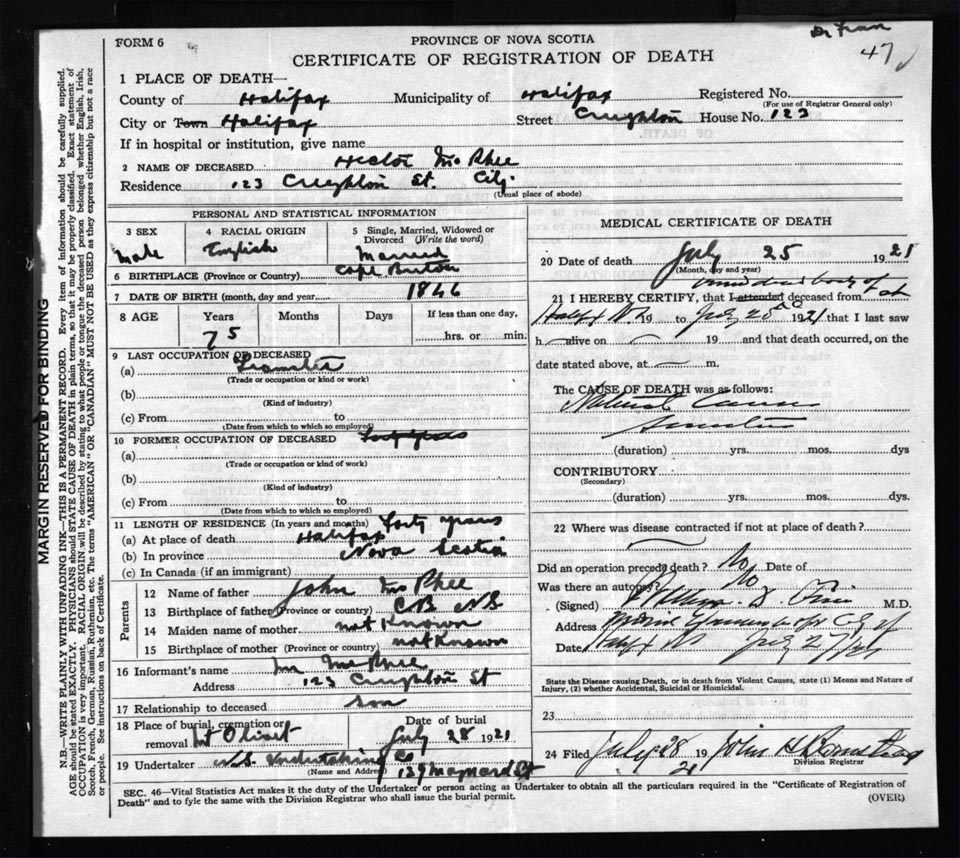 FORM 6
PROVINCE OF NOVA SCOTIA
47
CERTIFICATE OF REGISTRATION OF DEATH
1 PLACE OF DEATH—
County of Halifax Municipality of Halifax Registered No.
(For use of Registrar General only)
City or Town Halifax Street Creighton House No. 123
If in hospital or institution, give name
2 NAME OF DECEASED Hector Mc Phee
Residence 123 Creighton St. City
(Usual place of abode)
PERSONAL AND STATISTICAL INFORMATION
3 SEX
Male
4 RACIAL ORIGIN
English
5 Single, Married, Widowed or Divorced (Write the word)
Married
6 BIRTHPLACE (Province or Country) Cape Breton
7 DATE OF BIRTH (month, day and year) 1846
8 AGE Years Months Days If less than one day,
75 hrs. or min.
9 LAST OCCUPATION OF DECEASED
(a) Teamster
(Trade or occupation or kind or work)
(b)
(Kind of industry)
(c) From to
(Date from which to which so employed)
10 FORMER OCCUPATION OF DECEASED
(a)
(Trade or occupation or kind of work)
(b)
(Kind of industry)
(c) From to
(Date from which to which so employed)
11 LENGTH OF RESIDENCE (In years and months) Forty years
(a) At place of death Halifax
(b) In province Nova Scotia
(c) In Canada (if an immigrant)
Parents
12 Name of father John Mc Phee
13 Birthplace of father (Province or country) CB NS
14 Maiden name of mother not Known
15 Birthplace of mother (Province or country) not Known
16 Informant's name Mc Phee
Address 123 Creighton St
17 Relationship to deceased son
18 Place of burial, cremation or removal Mt Olivet
Date of burial
July 28 1921
19 Undertaker N.S. Undertaking Co
(Name and Address) 129 Maynard St
MEDICAL CERTIFICATE OF DEATH
20 Date of death July 25 1921
(Month, day and year)
viewed dead body of
21 I HEREBY CERTIFY, that I attended deceased from at
Halifax 19 to July 1921 that I last saw
h alive on 19 and that death occurred, on the
date stated above, at m.
The CAUSE OF DEATH was as follows:
Natural Causes
(duration) yrs. mos. dys
CONTRIBUTORY
(Secondary)
(duration) yrs. mos. dys.
22 Where was disease contracted if not at place of death?
Did an operation precede death? No Date of
Was there an autopsy? No
(Signed) M.D.
Address Medical Examiner for City of
Date July 27
State the Disease causing Death, or in death from Violent Causes, state (1) Means and Nature of
Injury, (2) whether Accidental, Suicidal or Homicidal.
23
24 Filed July 28 1921 John H
Division Registrar
SEC. 46—Vital Statistics Act makes it the duty of the Undertaker or person acting as Undertaker to obtain all the particulars required in the "Certificate of Registration of
Death" and to fyle the same with the Division Registrar who shall issue the burial permit.
(OVER)
MARGIN RESERVED FOR BINDING
N.B.—WRITE PLAINLY WITH UNFADING INK—THIS IS A PERMANENT RECORD. Every item of information should be carefully supplied.
AGE should be stated EXACTLY. PHYSICIANS should STATE CAUSE OF DEATH in plain terms, so that it may be properly classified. Exact statement of
OCCUPATION is very important. RACIAL ORIGIN will be described by stating to what people or tongue the deceased person belonged whether English, Irish,
Scotch, French, German, Russian, Ruthenian, etc. The terms "AMERICAN" OR "CANADIAN" MUST NOT BE USED as they express citizenship but not a race
or people. See instructions on back of Certificate.